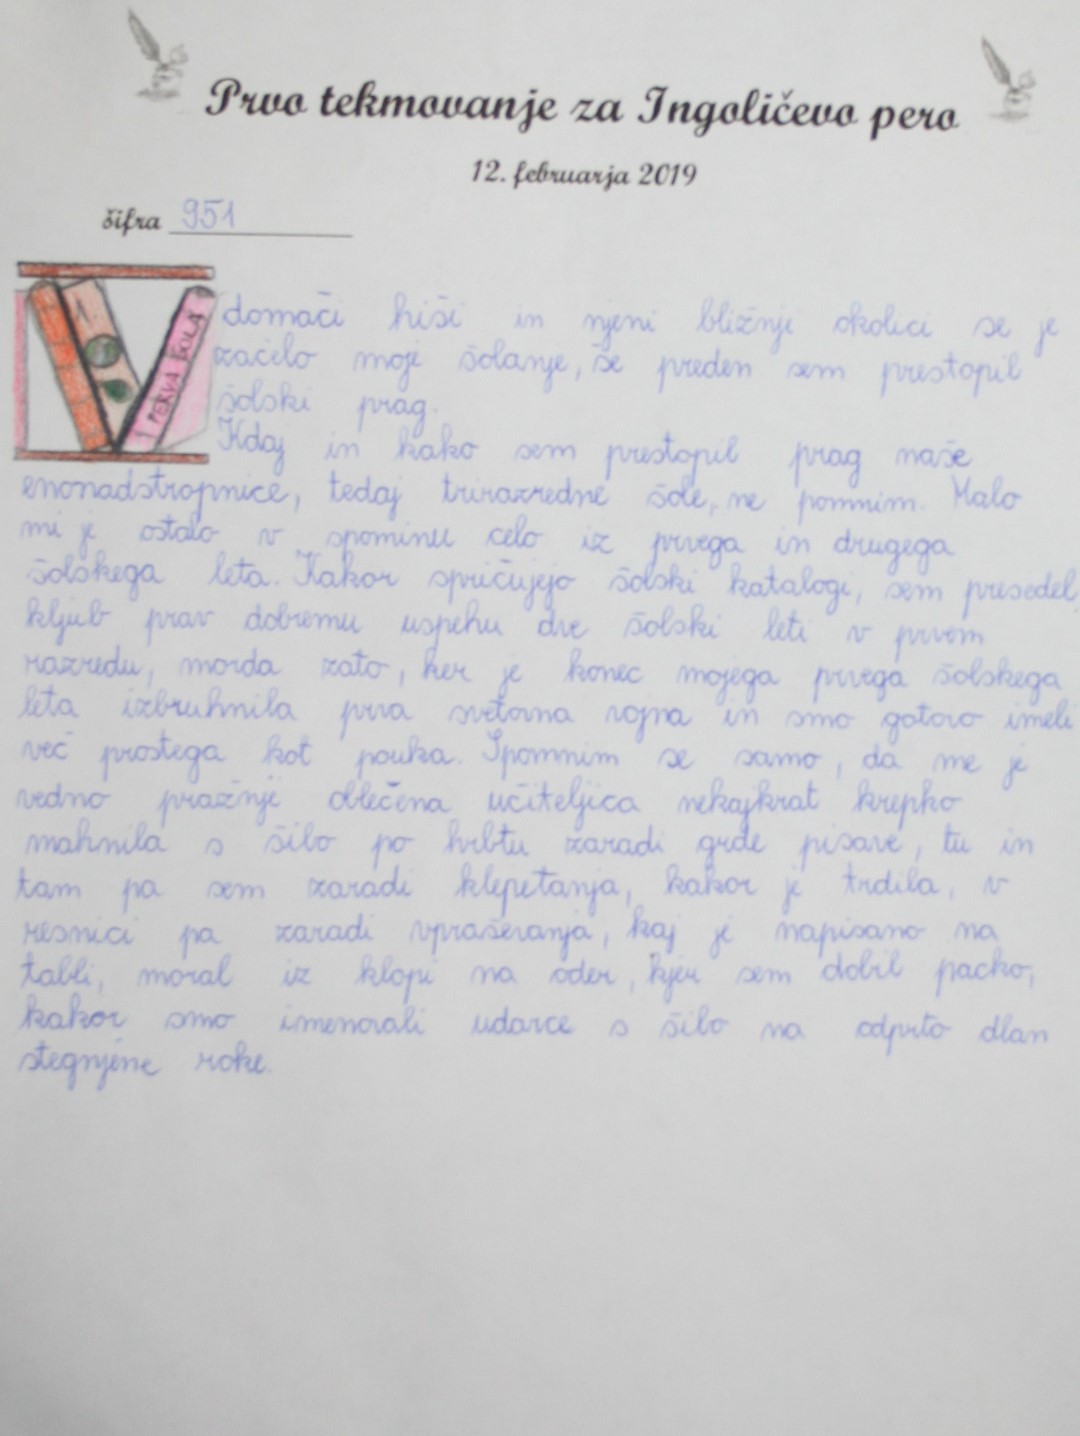 Prvo tekmovanje za Ingoličevo pero
12. februarja 2019
šifra 951
V domači hiši in njeni bližnji okolici se je
začelo moje šolanje, še preden sem prestopil
šolski prag.
Kdaj in kako sem prestopil prag naše
enonadstropnice, tedaj trirazredne šole, ne pomnim. Malo
mi je ostalo v spominu celo iz prvega in drugega
šolskega leta. Kakor spričujejo šolski katalogi, sem presedel,
kljub prav dobremu uspehu dve šolski leti v prvem
razredu, morda zato, ker je konec mojega prvega šolskega
leta izbruhnila prva svetovna vojna in smo gotovo imeli
več prostega kot pouka. Spomnim se samo, da me je
vedno pražnje oblečena učiteljica nekajkrat krepko
mahnila s šibo po hrbtu zaradi grde pisave, tu in
tam pa sem zaradi klepetanja, kakor je trdila, v
resnici pa zaradi vpraševanja, kaj je napisano na
tabli, moral iz klopi na oder, kjer sem dobil packo,
kakor smo imenovali udarce s šibo na odprto dlan
stegnjene roke.